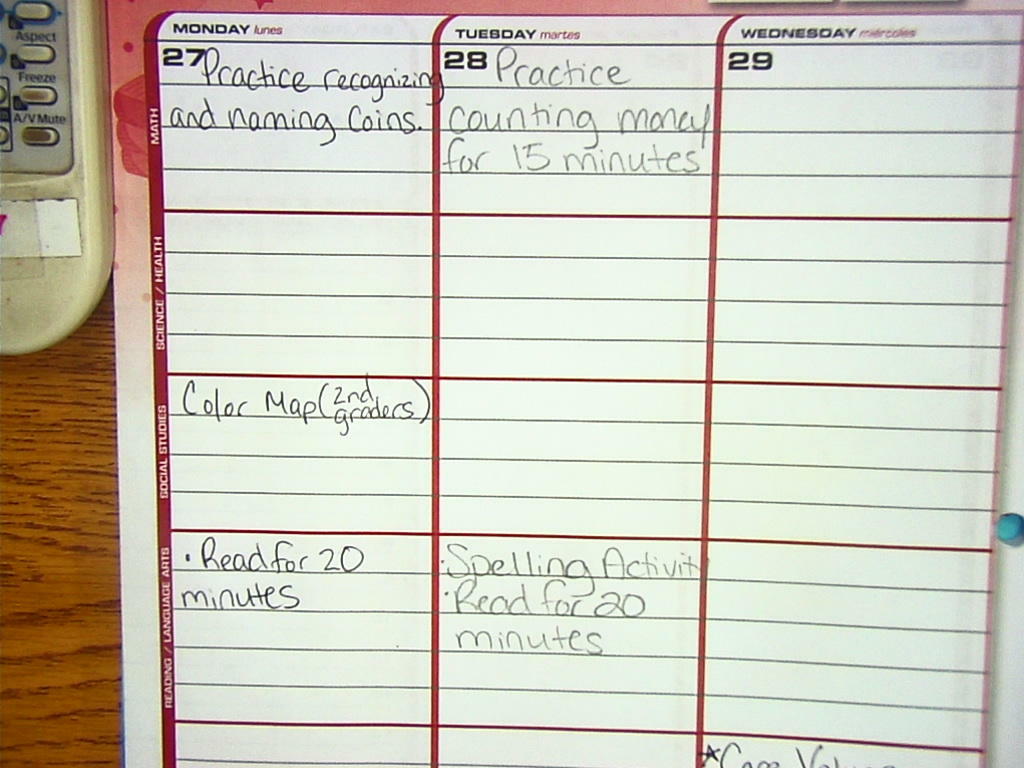 Aspect
Freeze
A/V Mute
MONDAY lunes
27 Practice recognizing
and naming Coins.
MATH
SCIENCE / HEALTH
Color Map (2nd
graders)
SOCIAL STUDIES
· Read for 20
minutes
READING / LANGUAGE ARTS
TUESDAY martes
28 Practice
counting money
for 15 minutes
· Spelling Activity
· Read for 20
minutes
WEDNESDAY miércoles
29